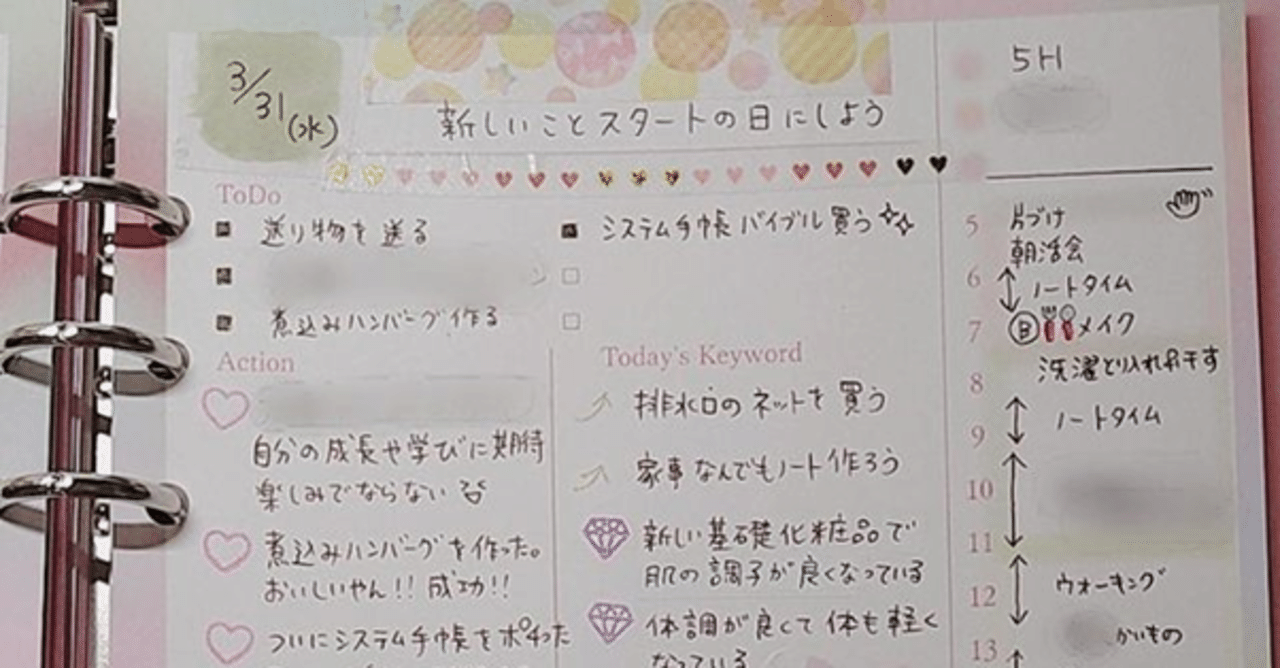 3/31(水)
新しいことスタートの日にしよう
ToDo
送り物を送る
煮込みハンバーグ作る
システム手帳バイブル買う
Action
自分の成長や学びに期待
楽しみでならない
煮込みハンバーグを作った。
おいしいやん!! 成功!!
ついにシステム手帳をポチった
Today's Keyword
排水口のネットを買う
家事なんでもノート作ろう
新しい基礎化粧品で
肌の調子が良くなっている
体調が良くて体も軽く
なっている
5H
5 片づけ
朝活会
6 ノートタイム
7 B メイク
洗濯とり入れ&干す
8
ノートタイム
9
10
11
12 ウォーキング
13 かいもの